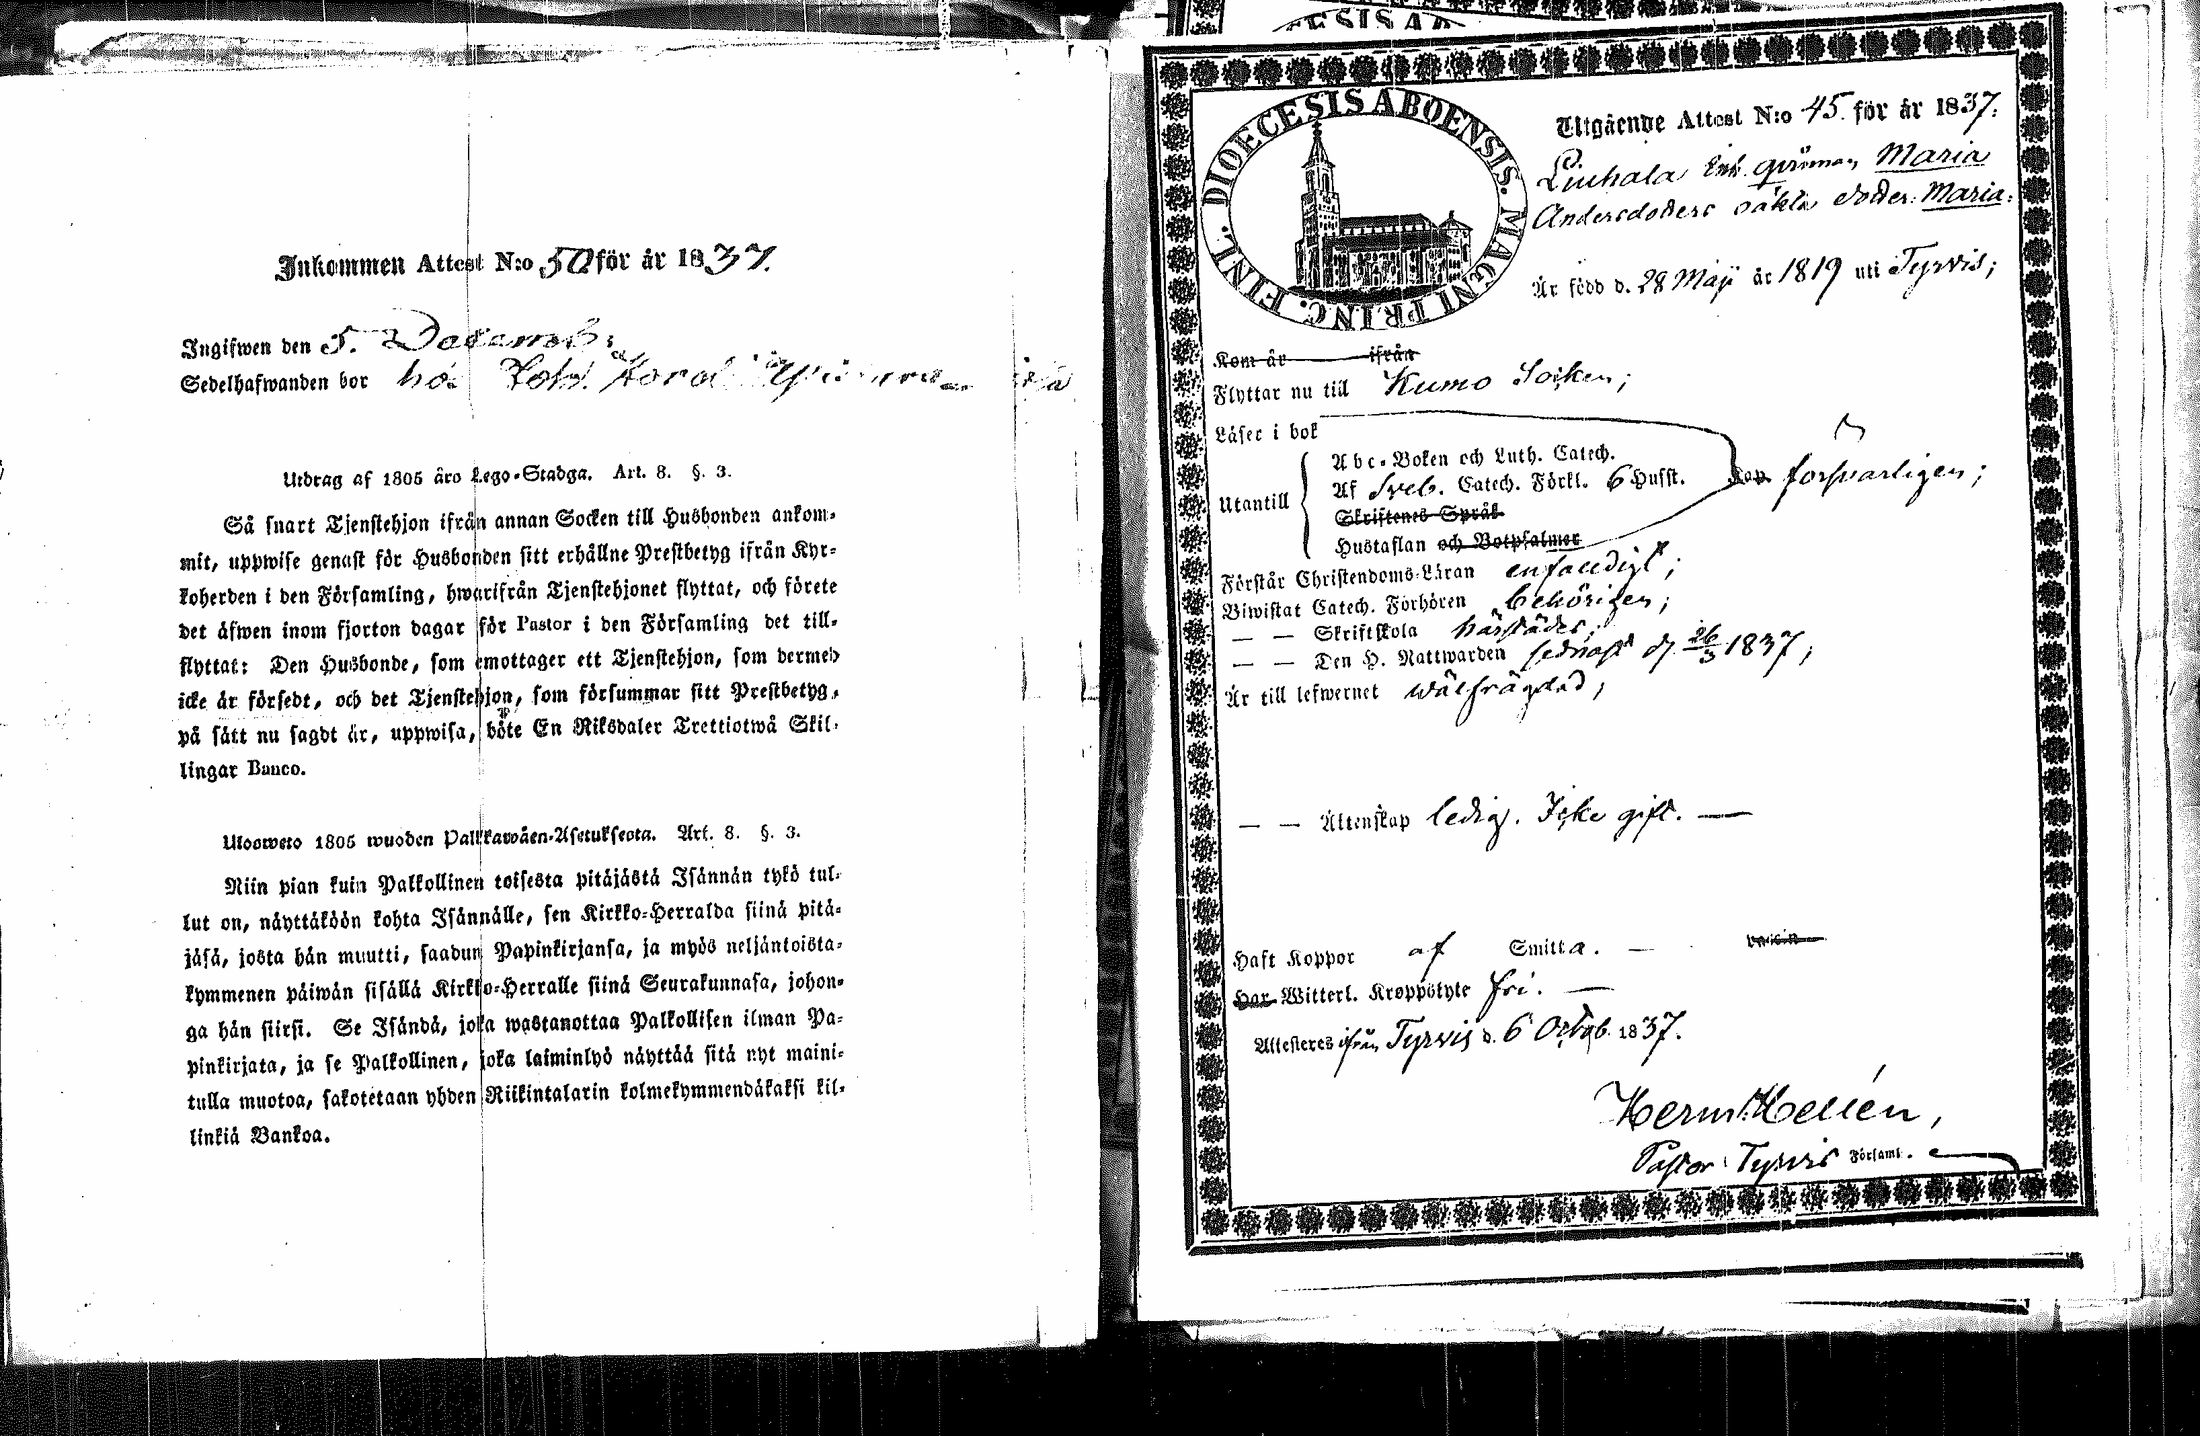 Inkommen Attest N:o 50 för år 1837.
Ingifwen den 5. Decemb:
Sedelhafwanden bor hos
Utdrag af 1805 års Lego-Stadga. Art. 8. §. 3.
Så snart Tjenstehjon ifrån annan Socken till Husbonden ankom-
mit, uppwise genast för Husbonden sitt erhållne Prestbetyg ifrån Kyr-
koherden i den Församling, hwarifrån Tjenstehjonet flyttat, och förete
det äfwen inom fjorton dagar för Pastor i den Församling det till-
flyttat: Den Husbonde, som emottager ett Tjenstehjon, som dermed
icke är försedt, och det Tjenstehjon, som försummar sitt Prestbetyg,
på sätt nu sagdt är, uppwisa, böte En Riksdaler Trettiotwå Skil-
lingar Banco.
Ulosweto 1805 wuoden Palkkawäen-Asetuksesta. Art. 8. §. 3.
Niin pian kuin Palkollinen toisesta pitäjästä Isännän tykö tul-
lut on, näyttäköön kohta Isännälle, sen Kirkko-Herralda siinä pitä-
jäsä, josta hän muutti, saadun Papinkirjansa, ja myös neljäntoista-
kymmenen päiwän sisällä Kirkko-Herralle siinä Seurakunnasa, johon-
ga hän siirsi. Se Isändä, joka wastanottaa Palkollisen ilman Pa-
pinkirjata, ja se Palkollinen, joka laiminlyö näyttää sitä nyt maini-
tulla muotoa, sakotetaan yhden Riikintalarin kolmekymmendäkaksi kil-
linkiä Bankoa.
DIOECESIS ABOENSIS. MAGNI PRINC. FINL.
Utgående Attest N:o 45. för år 1837.
Liuhala Maria
Andersdoters dotter: Maria:
Är född d. 28 Maji år 1819 uti Tyrvis;
Kom år ifrån
Flyttar nu till Kumo Socken;
Läser i bok
Utantill
Abc-Boken och Luth. Catech.
Af Sveb. Catech. Förkl. 6 Husst. försvarligen;
Skriftenes Språk
Hustaflan och Botpsalmer
Förstår Christendoms-Läran enfaldigt;
Biwistat Catech. Förhören behörigen;
— — Skriftskola härstädes;
— — Den H. Nattwarden sednast d. 26/3 1837;
Är till lefwernet wälfrägdad;
— — Äktenskap ledig. Icke gift. —
Haft Koppor af Smitta. — vaccin
Har Witterl. Kroppslyte fri. —
Attesteres ifrån Tyrvis d. 6 Octob. 1837.
Herm. Hellén,
Pastor i Tyrvis Församl.